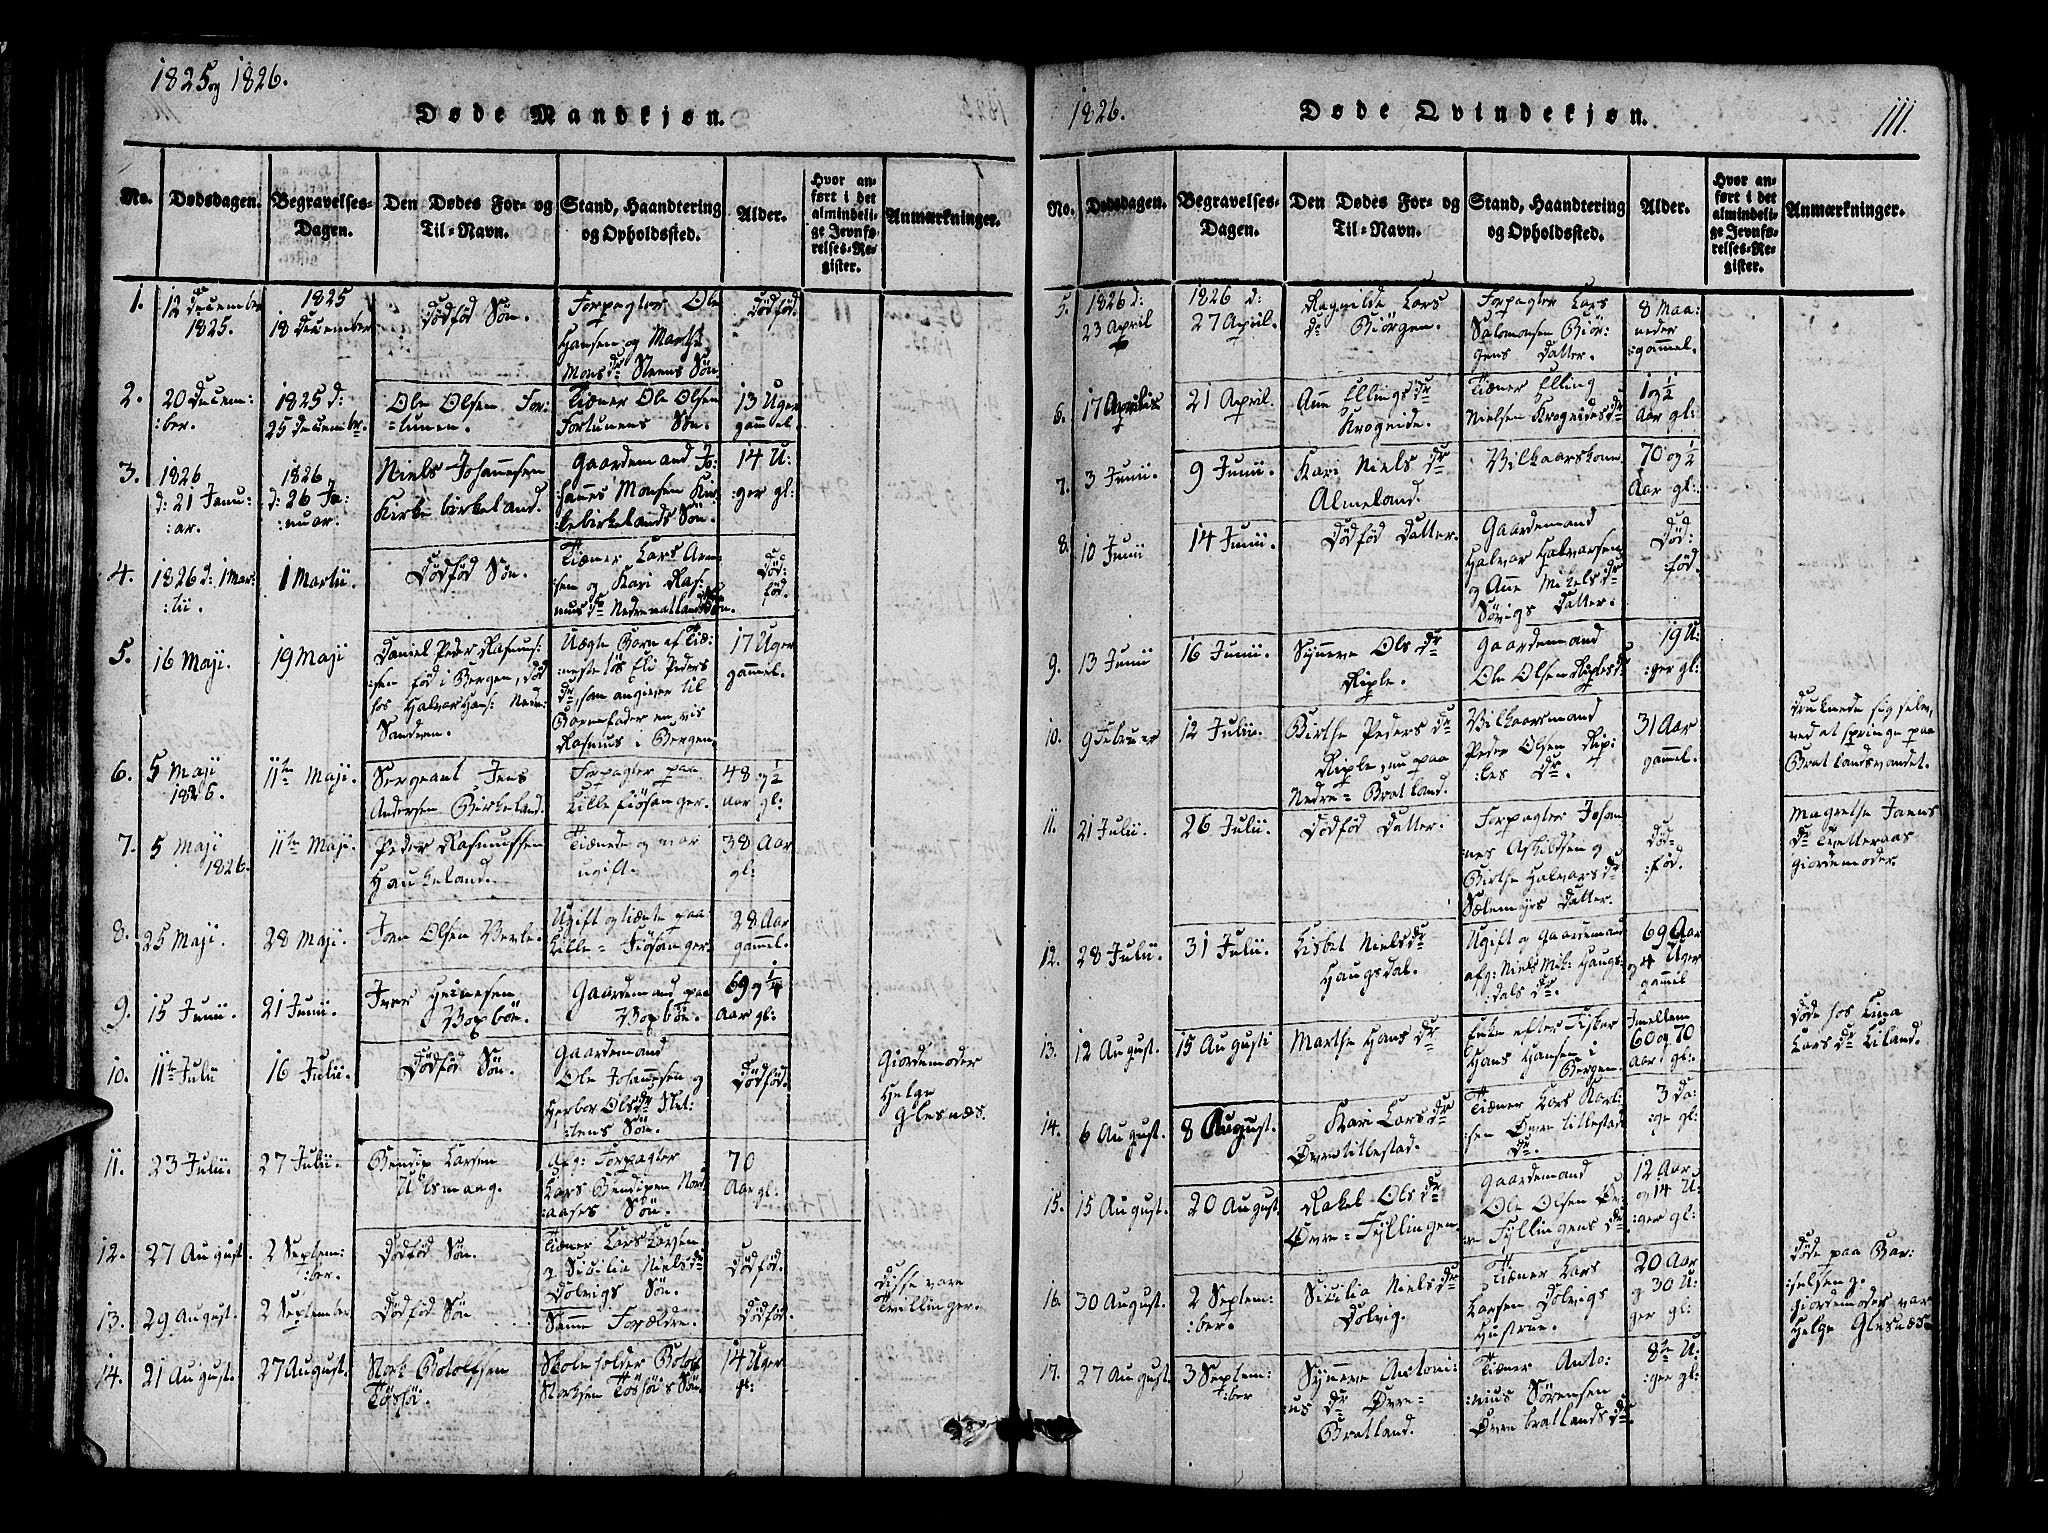 1825 og 1826.
Døde Mandkjøn.
No.
Dødsdagen.
Begravelses-
Dagen.
Den Dødes For- og
Til-Navn.
Stand, Haandtering
og Opholdssted.
Alder.
Hvor an-
ført i det
almindeli-
ge Jevnfø-
relses-Re-
gister.
Anmærkninger.
1.
12 December
1825.
1825
18 December
Dödföd Sön.
Forpagter Ole
Hansen og Marthe
Mons dr Steens Sön.
Dödföd.
2.
20 Decem-
:ber.
1825 d:
25 December.
Ole Olsen For-
=tunen.
Tiæner Ole Olsen
Fortunens Sön.
13 Uger
gammel.
3.
1826
d: 21 Janu-
:ar.
1826
d: 26 Ja:
:nuar.
Niels Johannesen
Kirkebirkeland.
Gaardemand Jo:
:hannes Monsen Kir:
:kebirkelands Sön.
14 U:
:ger gl:
4.
1826 d: 1 Mar:
:tii.
1 Martii.
Dödföd Sön.
Tiæner Lars Arne
:sen og Kari Ras:
mus dr Nedrevatlands Sön.
Död:
:föd.
5.
16 Maji.
19 Maji
Daniel Peder Rasmus:
:sen föd i Bergen, död
hos Halvor Hans:
Sandven.
Uægte Barn af Tiæ:
:neste Eli Peders
dr, som angiver til
Barnefader en vis
Rasmus i Bergen.
17 Uger
gammel.
6.
5 Maji
1826.
11te Maji.
Sergeant Jens
Andersen Birkeland.
Forpagter paa
Lille Fiösanger.
48 og 1/2
Aar gl:
7.
5 Maji
1826.
11te Maji.
Peder Rasmussen
Haukeland.
Tiænede og var
ugift.
38 Aar
gl:
8.
25 Maji.
28 Maji.
Jon Olsen Berle.
Ugift og tiænte paa
Lille = Fiösanger.
28 Aar
gammel.
9.
15 Junii.
21 Junii.
Iver Heinesen
Boxbön.
Gaardemand paa
Boxbön.
69 og 1/4
Aar gl:
10.
11te Julii
16 Julii.
Dödföd Sön.
Gaardemand
Ole Johannesen og
Herbor Ols dr Slet:
:tens Sön.
Dödföd.
Giordemoder
Helge
Glesnæs.
11.
23 Julii.
27 Julii.
Bendix Larsen
Ulsmaag.
Afg: Forpagter
Lars Bendixen Nord:
:aases Sön.
70
Aar gl:
12.
27 August.
2 Septem:
:ber.
Dödföd Sön.
Tiæner Lars Larsen
og Sicilia Niels dr
Dolvigs Sön.
Dödföd.
13.
29 August.
2 September
Dödföd Sön
Samme Forældre.
Dödföd.
Disse vare
Tvillinger.
14.
21 August.
27 August.
Nork Botolfsen
Tösse.
Skoleholder Botolf
14 Uger
1826.
Døde Qvindekjøn.
111.
No.
Dødsdagen.
Begravelses-
Dagen.
Den Dødes For- og
Til-Navn.
Stand, Haandtering
og Opholdssted.
Alder.
Hvor an-
ført i det
almindeli-
ge Jevnfø-
relses-Re-
gister.
Anmærkninger.
5.
1826 d:
23 April
1826 d:
27 April.
Ragnilde Lars
dr Biörgen.
Forpagter Lars
Salomonsen Biör:
gens Datter.
8 Maa:
neder
:gammel.
6.
17 Aprilis
21 April.
Anne Ellings dr
Krogeide.
Tiæner Elling
Nielsen Krogeides dr
1 og 1/2
Aar gl:
7.
3 Junii.
9 Junii.
Kari Niels dr
Almeland.
Vilkaarskone.
70 og 1/2
Aar gl:
8.
10 Junii
14 Junii.
Dödföd Datter.
Gaardemand
Halvor Halvorsen
og Anne Mikels dr
Sövigs Datter.
Död:
:föd.
9.
13 Junii
16 Junii.
Synneve Ols dr
Riple.
Gaardemand
Ole Olsen Riples dr
19 U:
:ger gl:
10.
9 Februar
12 Julii.
Birthe Peders dr
Riple, nu paa
Nedre = Bratland.
Vilkaarsmand
Peder Olsen Rip:
:les dr.
31 Aar
gammel.
Druknede sig selv,
ved at springe paa
Bratlandsvandet.
11.
21 Julii.
26 Julii.
Dödföd Datter.
Forpagter Johan
nes Askildsen og
Birthe Halvors dr
Sælemyrs Datter.
Död:
:föd.
Magrethe Jans
dr Tvetteraas
giordemoder.
12.
28 Julii.
31 Julii.
Lisbet Niels dr
Haugsdal.
Ugift og Gaardemand
afg: Niels Mik: Haugs:
:dals dr.
69 Aar
og 4 Uger
gammel
13.
12 August.
15 Augusti
Marthe Hans dr
Enke efter Fisker
Hans Hansen i
Bergen.
Imellem
60 og 70
Aar gl:
Döde hos Lina
Lars dr Liland.
14.
6 August.
8 August.
Kari Lars dr
Øvre titlestad.
Tiæner Lars
:sen Øvre titlestad
dr.
3 Da:
:ge gl:
15.
15 August.
20 August.
Rakel Ols dr
Øvre = Fyllingen.
Gaardemand
Ole Olsen Øv
re Fyllingens dr
12 Aar
og 14 U:
:ger gl:
16.
30 August.
2 Septem:
:ber.
Sicilia Niels dr
Dolvig.
Tiæner Lars
Larsen Dolvigs
Hustrue.
20 Aar
og 30 U:
ger gl:
Döde paa Bar:
:selseng.
Giordemoder var
Helge Glesnæs.
17.
27 August.
3 Septem:
:ber
Synneve Antoni:
:us dr Øvre=
Bratland.
Tiæner Anto:
:nius Sörensen
Øvre bratlands dr.
8te U:
:ger gl: